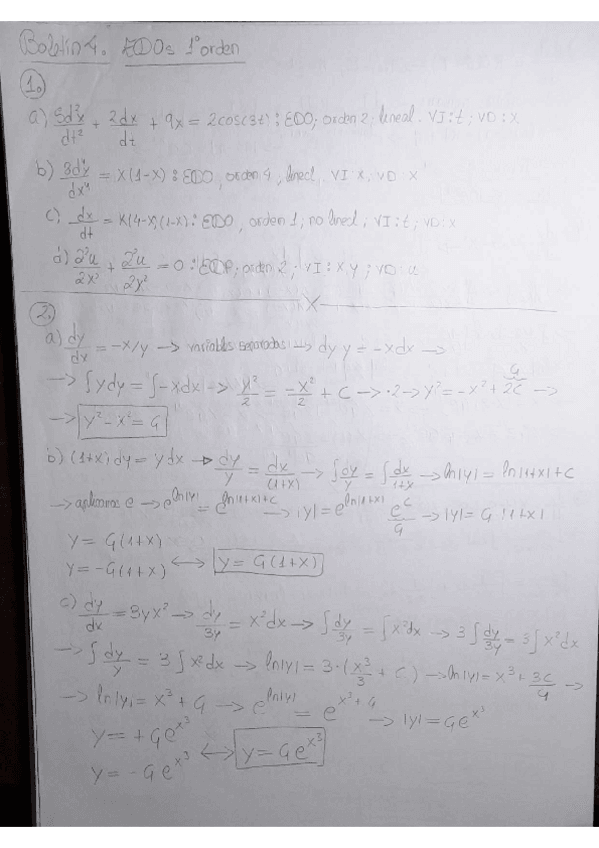 Boletín 4. EDOs 1º orden
1.
a) 5d²x/dt² + 2dx/dt + 9x = 2cos(3t) : EDO; orden 2, lineal. VI: t; VD: x
b) 8d⁴y/dx⁴ = x(1-x) : EDO, orden 4, lineal, VI: x, VD: x
c) dx/dt = k(4-x)(1-x) : EDO, orden 1; no lineal; VI: t; VD: x
d) ∂²u/∂x² + ∂²u/∂y² = 0 : EDP; orden 2; VI: x y ; VD: u
x
2.
a) dy/dx = -x/y → variables separadas → dy y = -x dx →
→ ∫ y dy = ∫ -x dx → y²/2 = -x²/2 + C → ·2 → y² = -x² + 2C →
→ y² - x² = G
b) (1+x) dy = y dx → dy/y = dx/(1+x) → ∫ dy/y = ∫ dx/1+x → ln|y| = ln|1+x| + C
→ aplicamos e → e^ln|y| = e^ln|1+x|+C → |y| = e^ln|1+x| e^C → |y| = G |1+x|
y = G(1+x)
y = -G(1+x) ↔ y = G(1+x)
c) dy/dx = 3yx² → dy/3y = x² dx → ∫ dy/3y = ∫ x² dx → 3 ∫ dy/3y = 3 ∫ x² dx
→ ∫ dy/y = 3 ∫ x² dx → ln|y| = 3·(x³/3 + C) → ln|y| = x³ + 3C →
→ ln|y| = x³ + G → e^ln|y| = e^x³+G → |y| = G e^x³
y = +G e^x³
y = -G e^x³ ↔ y = G e^x³